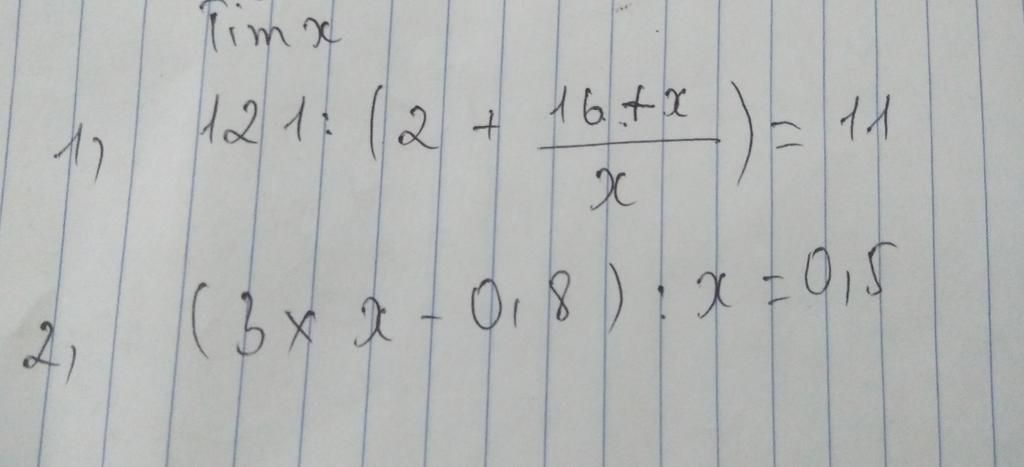 Tìm x
1, 121 : (2 + \frac{16 + x}{x}) = 11
2, (3 × x - 0,8) : x = 0,5